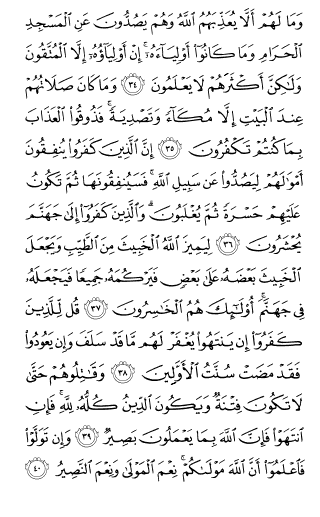 وَمَا لَهُمْ أَلَّا يُعَذِّبَهُمُ ٱللَّهُ وَهُمْ يَصُدُّونَ عَنِ ٱلْمَسْجِدِ
ٱلْحَرَامِ وَمَا كَانُوٓا۟ أَوْلِيَآءَهُۥٓ ۚ إِنْ أَوْلِيَآؤُهُۥٓ إِلَّا ٱلْمُتَّقُونَ
وَلَـٰكِنَّ أَكْثَرَهُمْ لَا يَعْلَمُونَ ٣٤ وَمَا كَانَ صَلَاتُهُمْ
عِندَ ٱلْبَيْتِ إِلَّا مُكَآءً وَتَصْدِيَةً ۚ فَذُوقُوا۟ ٱلْعَذَابَ
بِمَا كُنتُمْ تَكْفُرُونَ ٣٥ إِنَّ ٱلَّذِينَ كَفَرُوا۟ يُنفِقُونَ
أَمْوَٰلَهُمْ لِيَصُدُّوا۟ عَن سَبِيلِ ٱللَّهِ ۚ فَسَيُنفِقُونَهَا ثُمَّ تَكُونُ
عَلَيْهِمْ حَسْرَةً ثُمَّ يُغْلَبُونَ ۗ وَٱلَّذِينَ كَفَرُوٓا۟ إِلَىٰ جَهَنَّمَ
يُحْشَرُونَ ٣٦ لِيَمِيزَ ٱللَّهُ ٱلْخَبِيثَ مِنَ ٱلطَّيِّبِ وَيَجْعَلَ
ٱلْخَبِيثَ بَعْضَهُۥ عَلَىٰ بَعْضٍ فَيَرْكُمَهُۥ جَمِيعًا فَيَجْعَلَهُۥ
فِى جَهَنَّمَ ۚ أُو۟لَـٰٓئِكَ هُمُ ٱلْخَـٰسِرُونَ ٣٧ قُل لِّلَّذِينَ
كَفَرُوٓا۟ إِن يَنتَهُوا۟ يُغْفَرْ لَهُم مَّا قَدْ سَلَفَ وَإِن يَعُودُوا۟
فَقَدْ مَضَتْ سُنَّتُ ٱلْأَوَّلِينَ ٣٨ وَقَـٰتِلُوهُمْ حَتَّىٰ
لَا تَكُونَ فِتْنَةٌ وَيَكُونَ ٱلدِّينُ كُلُّهُۥ لِلَّهِ ۚ فَإِنِ
ٱنتَهَوْا۟ فَإِنَّ ٱللَّهَ بِمَا يَعْمَلُونَ بَصِيرٌ ٣٩ وَإِن تَوَلَّوْا۟
فَٱعْلَمُوٓا۟ أَنَّ ٱللَّهَ مَوْلَىٰكُمْ ۚ نِعْمَ ٱلْمَوْلَىٰ وَنِعْمَ ٱلنَّصِيرُ ٤٠